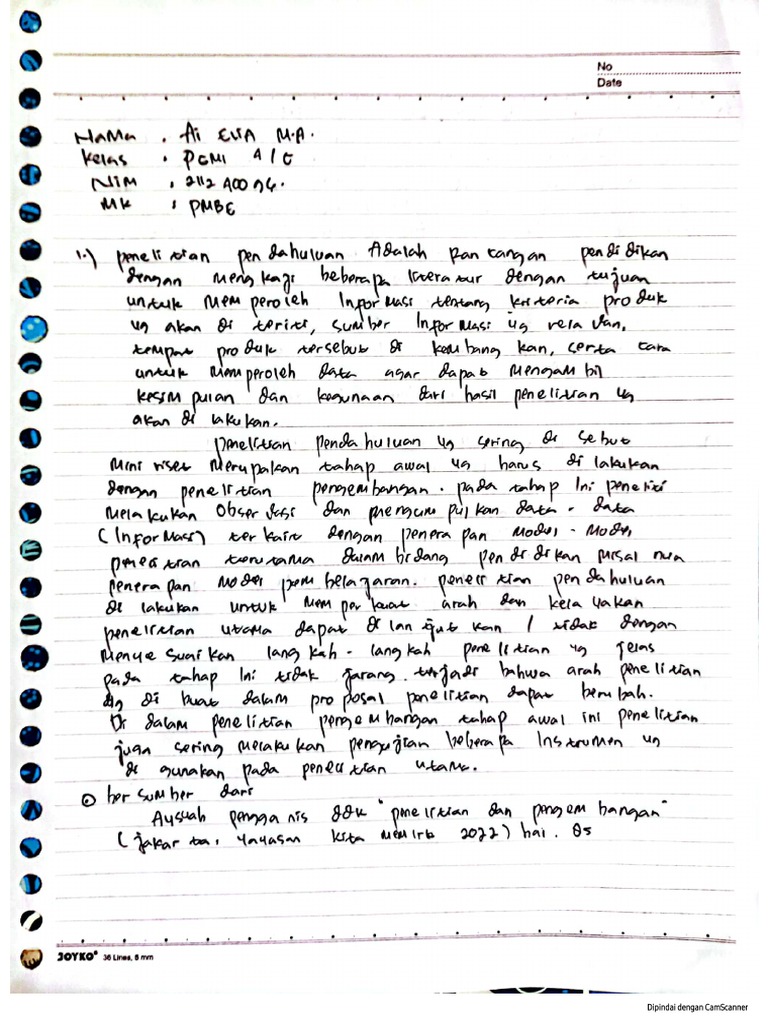 No
Date
Nama . Ai Elia M.A.
Kelas . PGMI 4/C
NIM . 2112400
MK . PMBE
1.) penelitian pendahuluan Adalah Rancangan pendidikan
dengan mengkaji beberapa literatur dengan tujuan
untuk memperoleh Informasi tentang kriteria produk
yg akan di teriti, sumber Informasi yg relavan,
tempat produk tersebut di kembangkan, serta cara
untuk memperoleh data agar dapat mengambil
kesimpulan dan kegunaan dari hasil penelitian yg
akan di lakukan.
penelitian pendahuluan yg sering di sebut
Mini riset Merupakan tahap awal yg harus di lakukan
dengan penelitian pengembangan. pada tahap Ini peneliti
melakukan Observasi dan mengumpulkan data-data
(Informasi) terkait dengan penerapan Model-Model
penelitian terutama dalam bidang pendidikan misalnya
penerapan Model pembelajaran. penelitian pendahuluan
di lakukan untuk memperkuat arah dan kelayakan
penelitian utama dapat di lanjutkan / tidak dengan
Menyesuaikan langkah-langkah penelitian yg jelas
pada tahap Ini tidak jarang terjadi bahwa arah penelitian
yg di buat dalam proposal penelitian dapat berubah.
Di dalam penelitian pengembangan tahap awal ini penelitian
juga sering melakukan pengujian beberapa Instrumen yg
di gunakan pada penelitian utama.
bersumber dari
Aysyah dkk "penelitian dan pengembangan"
(jakarta: yayasan kita menulis 2022) hal. 85
JOYKO® 36 Lines, 8 mm
Dipindai dengan CamScanner